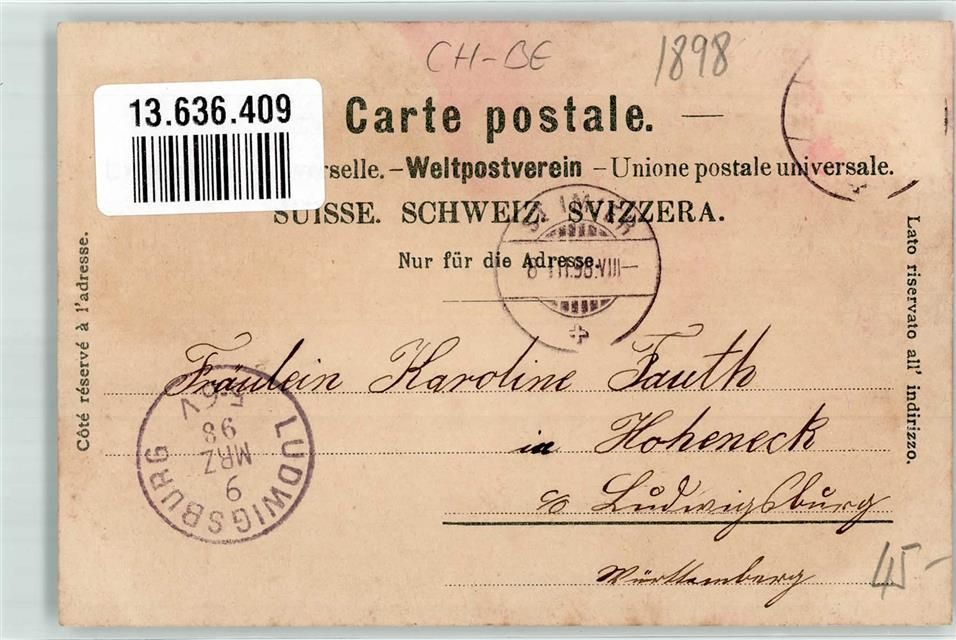 CH-BE
1898
13.636.409
Carte postale.
rselle. – Weltpostverein – Unione postale universale.
SUISSE. SCHWEIZ. SVIZZERA.
Nur für die Adresse.
Côté réservé à l'adresse.
Lato riservato all' indirizzo.
ST. IMIER
98.VIII–
Fräulein Karoline Fauth
in Hoheneck
Ludwigsburg
Württemberg
LUDWIGSBURG
9
MRZ
98
45-